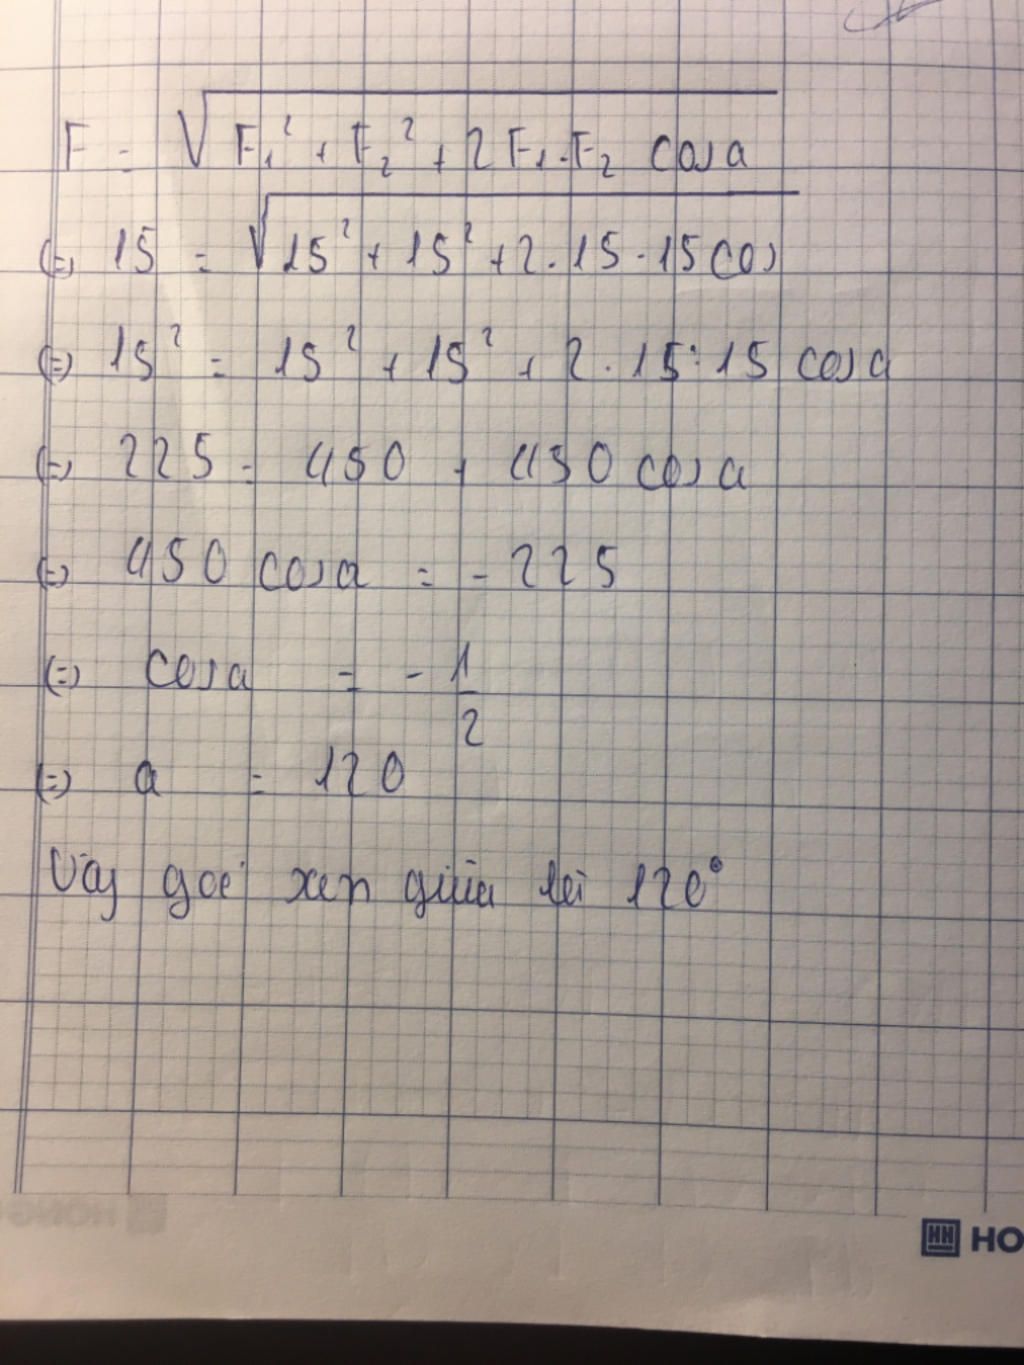 F = √F₁² + F₂² + 2F₁.F₂ cosa
(=) 15 = √15² + 15² + 2.15.15cos
(=) 15² = 15² + 15² + 2.15.15 cosa
(=) 225 = 450 + 450 cosa
(=) 450 cosa = -225
(=) cosa = - 1/2
(=) a = 120
Vậy góc xen giữa là 120°
HO